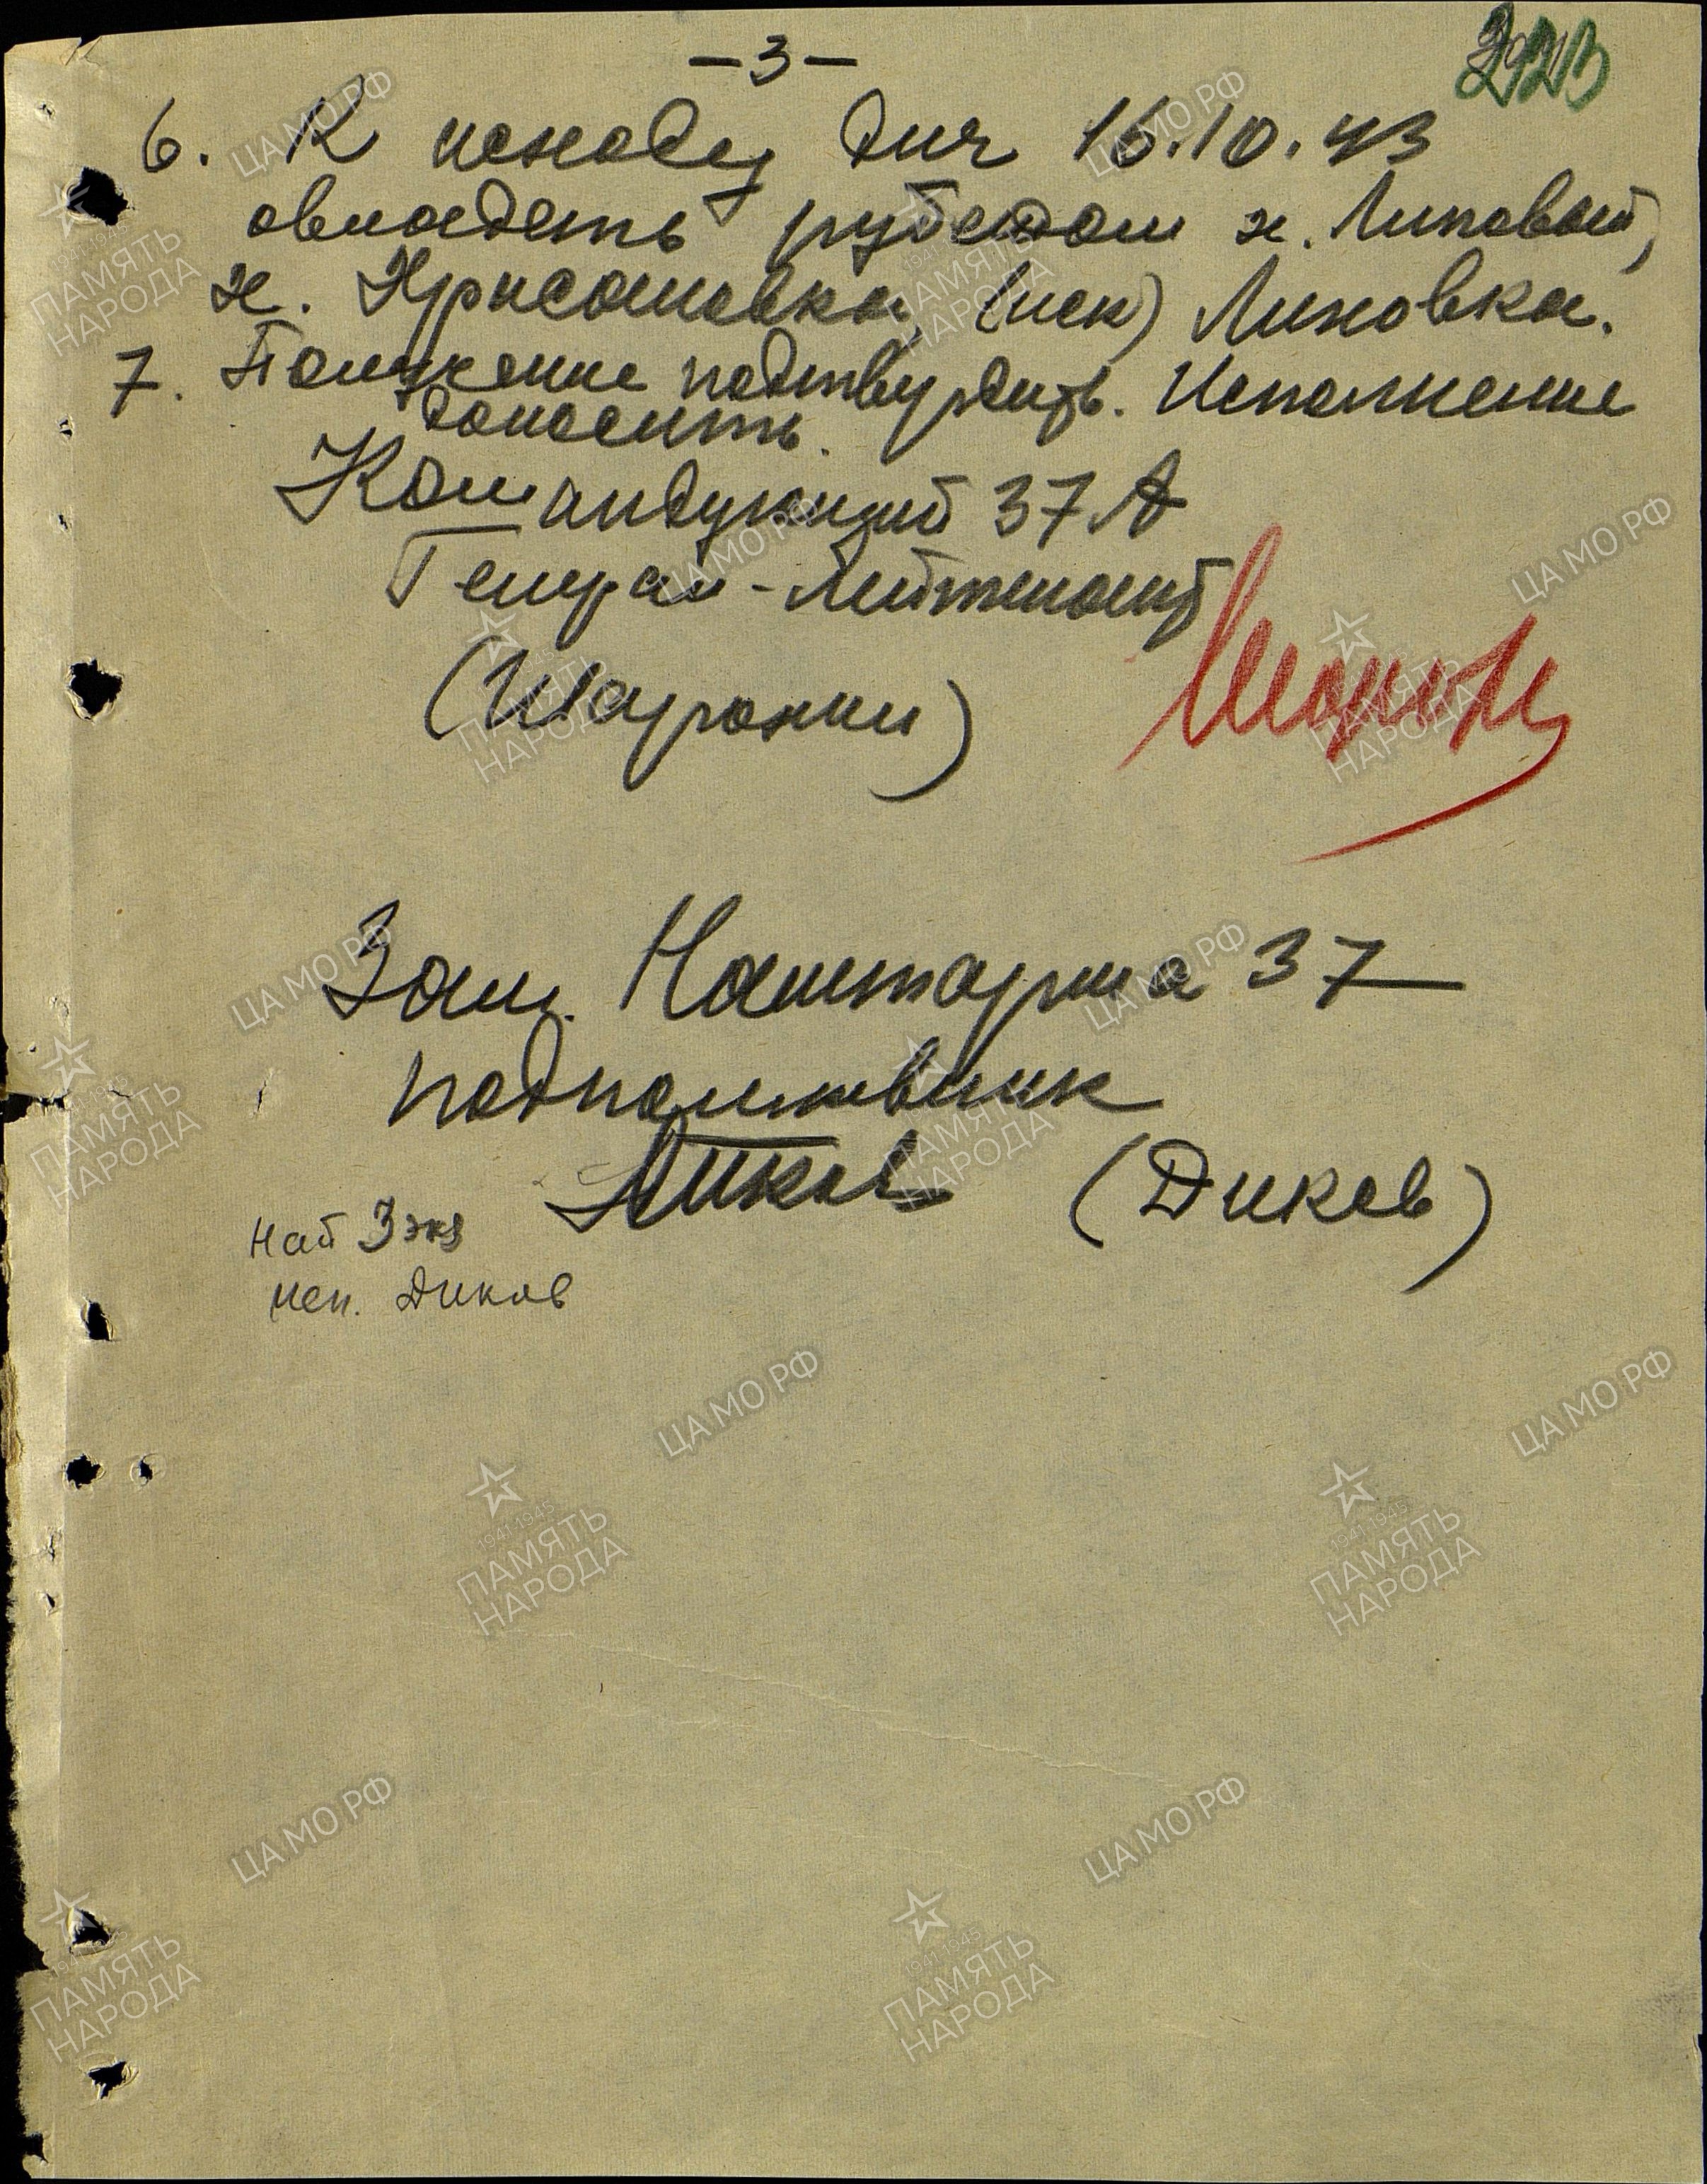 -3-
223
6. К исходу дня 16.10.43
овладеть рубежом х. Липовый,
х. Хрисановка, (иск) Лиховка.
7. Получение подтвердить. Исполнение
доносить.
Командующий 37 А
Генерал-лейтенант
(Шарохин)
Зам. Наштарма 37
подполковник
Диков (Диков)
Нап 3 экз
исп. Диков
ЦА МО РФ
1941-1945
ПАМЯТЬ
НАРОДА